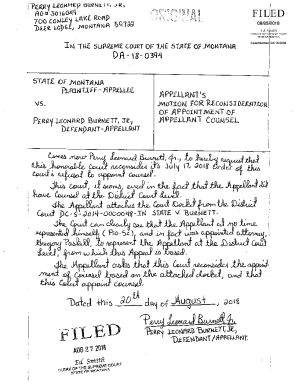 PERRY LEONARD BURNETT, JR,
AO# 3016049
700 CONLEY LAKE ROAD
DEER LODGE, MONTANA 59722
ORIGINAL
FILED
IN THE SUPREME COURT OF THE STATE OF MONTANA
DA-18-0394
STATE OF MONTANA
PLAINTIFF-APPELLEE
VS.
PERRY LEONARD BURNETT, JR,
DEFENDANT-APPELLANT
APPELLANT'S
MOTION FOR RECONSIDERATION
OF APPOINTMENT OF
APPELLANT COUNSEL
Comes now Perry Leonard Burnett, Jr., to hereby request that
this honorable court reconsiders its July 17, 2018 order of this
Court's refusal to appoint counsel.
This court, it seems, erred in the fact that the Appellant did
have Counsel at the District Court Level.
The Appellant attaches the Court Docket from the District
Court DC-5-2014-0000048-IN STATE V. BURNETT.
The Court can clearly see that the Appellant at no time
represented himself (Pro-Se), and in fact was appointed attorney,
Gregory Paskell, to represent the Appellant at the District Court
Level, from which this Appeal is based.
The Appellant asks that this Court reconsiders the appoint
ment of Counsel based on the attached docket, and that
this Court appoint counsel.
Dated this 20th day of August, 2018
Perry Leonard Burnett Jr
PERRY LEONARD BURNETT, JR,
DEFENDANT/APPELLANT.
FILED
AUG 27 2018
Ed Smith
CLERK OF THE SUPREME COURT
STATE OF MONTANA